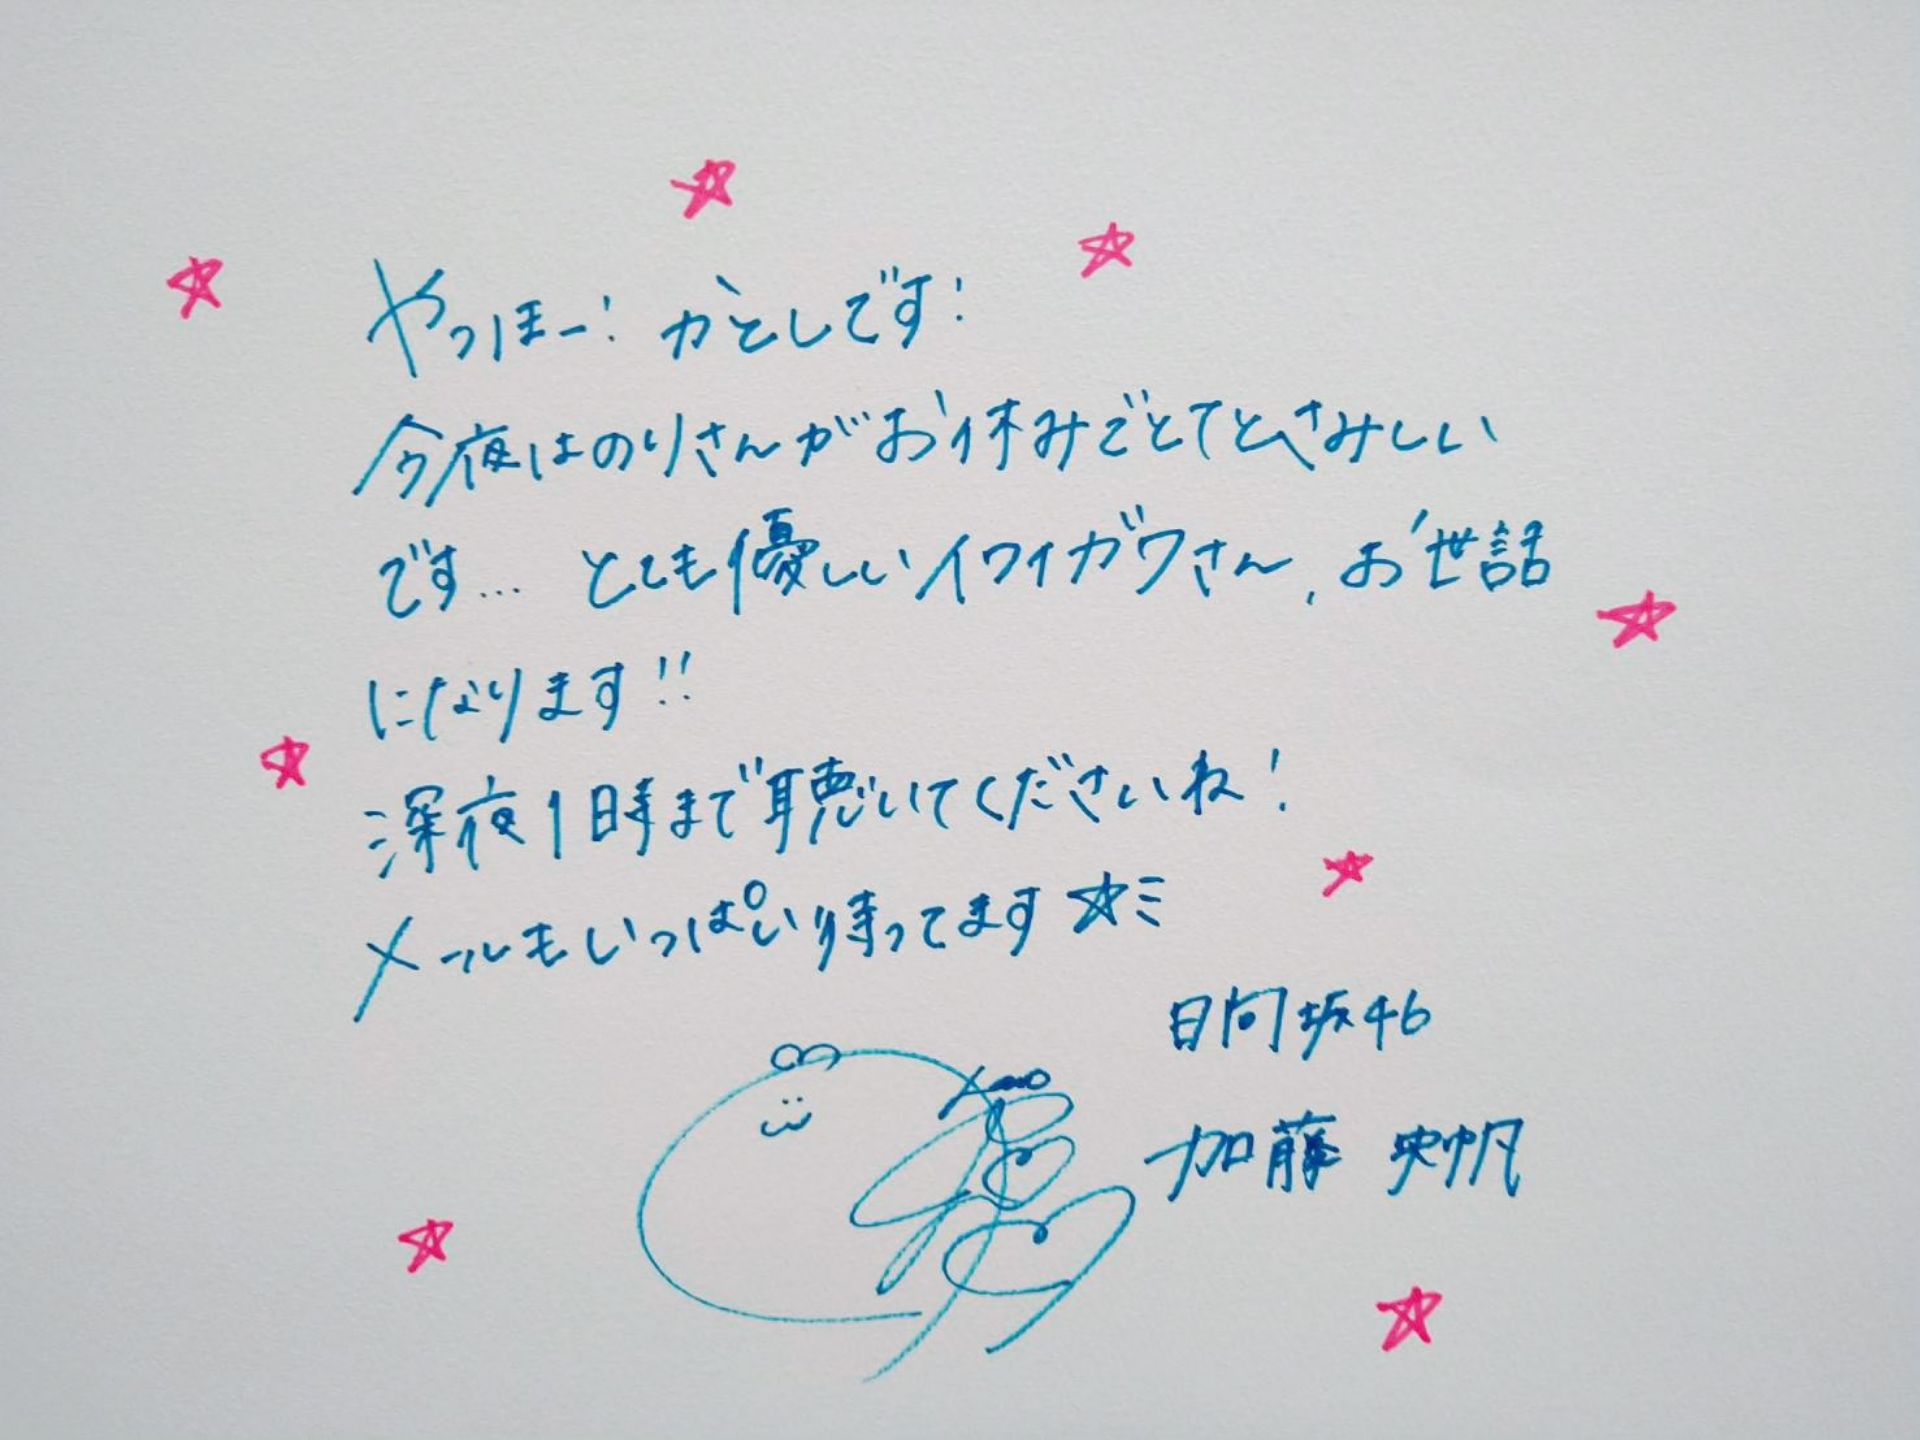 やっほー! かとしです!
今夜はのりさんがお休みでとてもさみしい
です... とても優しいイワイガワさん、お世話
になります!!
深夜1時まで聴いてくださいね!
メールもいっぱい待ってます☆ミ
日向坂46
加藤 史帆